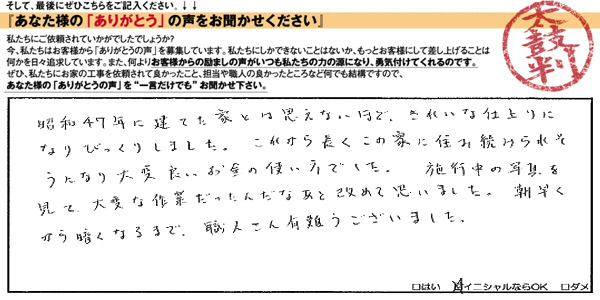 そして、最後にぜひこちらをご記入ください。↓↓
『あなた様の「ありがとう」の声をお聞かせください』
私たちにご依頼されていかがでしたでしょうか?
今、私たちはお客様から「ありがとうの声」を募集しています。私たちにしかできないことはないか、もっとお客様にして差し上げることは
何かを日々追求しています。また、何よりお客様からの励ましの声がいつも私たちの力の源になり、勇気付けてくれるのです。
ぜひ、私たちにお家の工事を依頼されて良かったこと、担当や職人の良かったところなど何でも結構ですので、
あなた様の「ありがとうの声」を“一言だけでも”お聞かせ下さい。
太鼓判
昭和47年に建てた家とは思えないほど、きれいな仕上りに
なりびっくりしました。これから長くこの家に住み続けられそ
うになり大変良いお金の使い方でした。施行中の写真を
見て、大変な作業だったんだなあと改めて思いました。朝早く
から暗くなるまで、職人さん有難うございました。
□はい ☑イニシャルならOK □ダメ